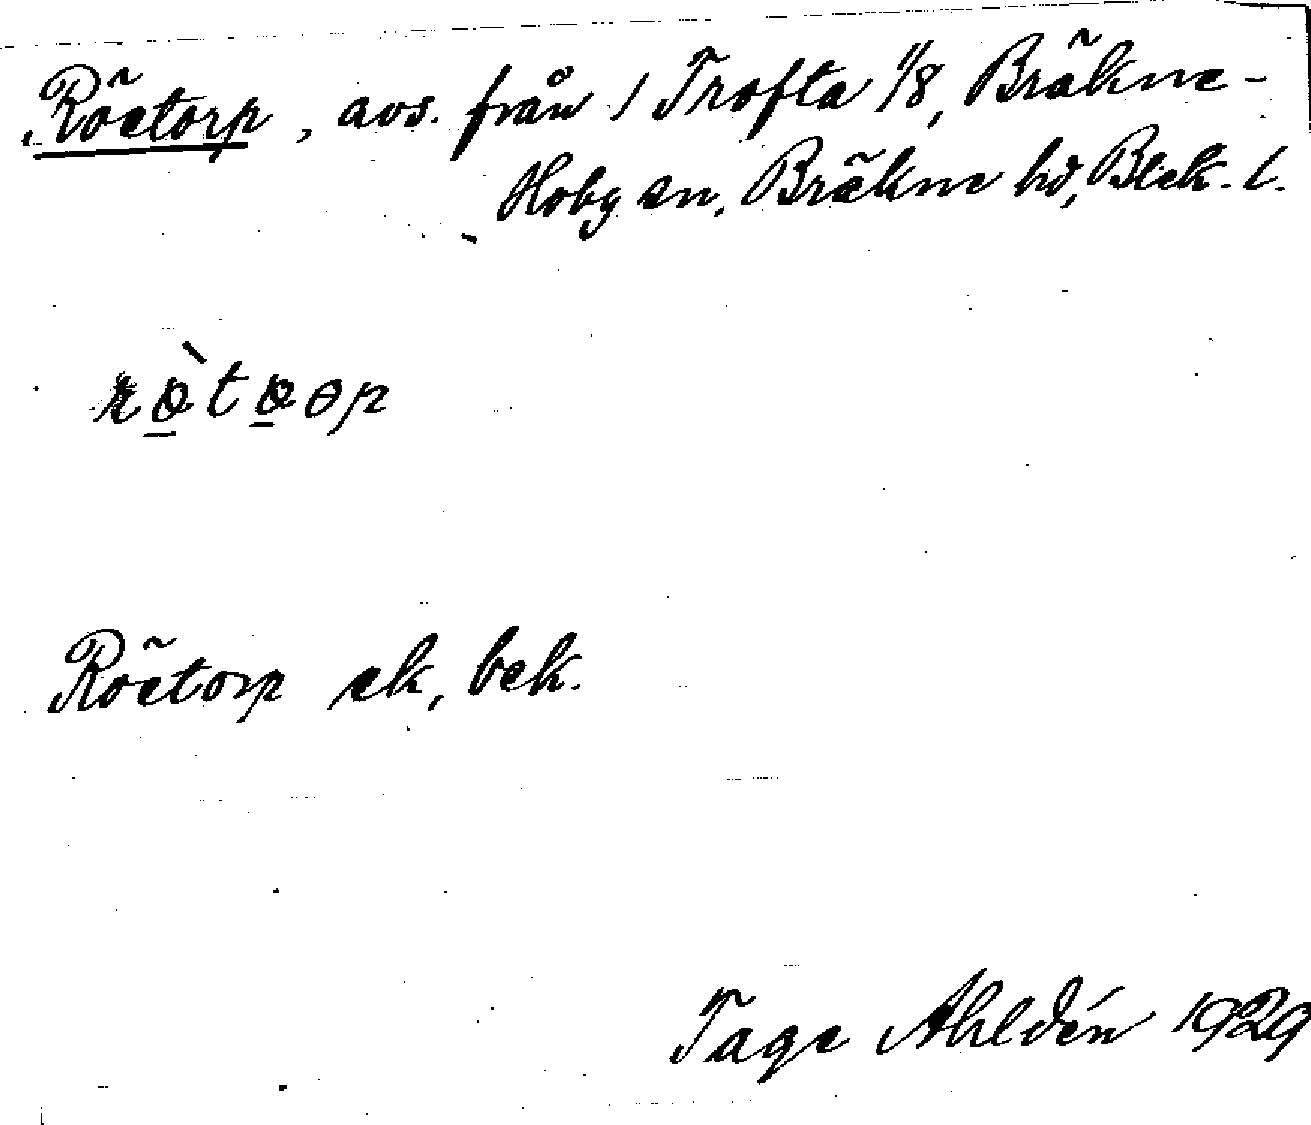 Röetorp, avs. från 1 Trofta 1/8, Bräkne-
Hoby sn, Bräkne hd, Blek. l.
Röetorp ek, bek.
Tage Ahldén 1929